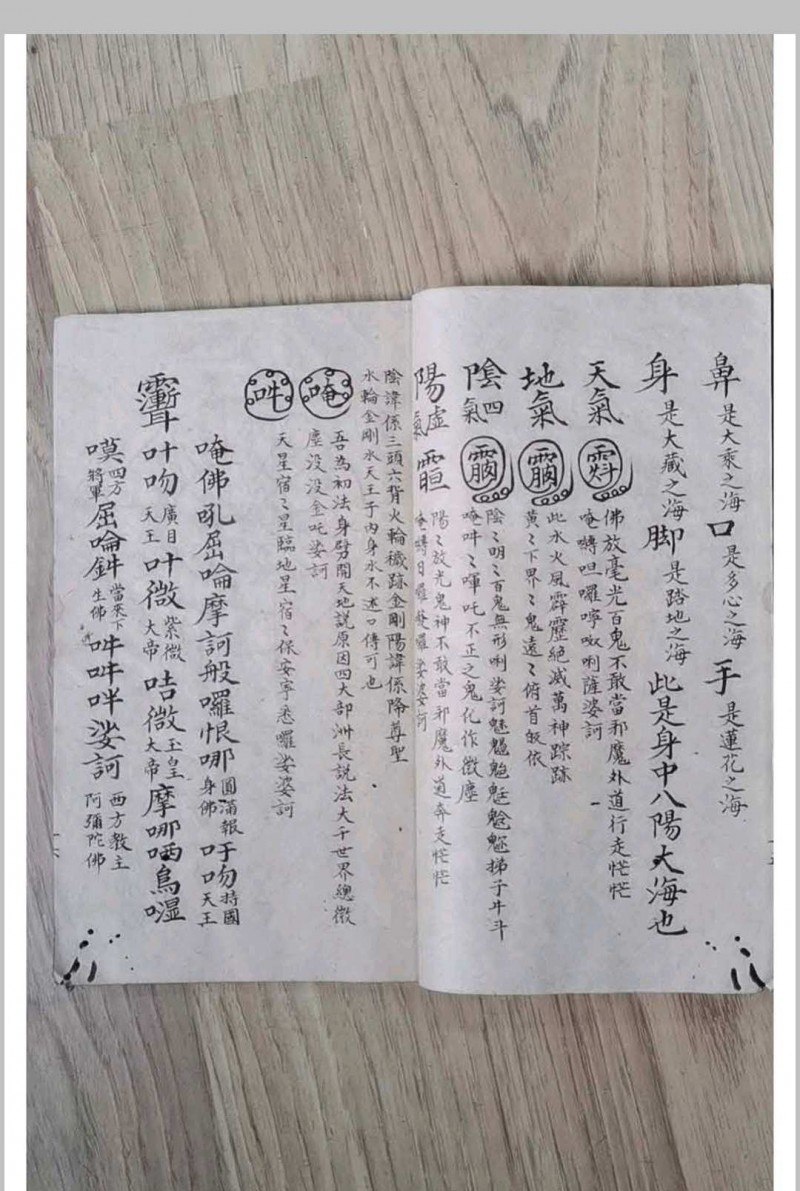 鼻是大乘之海口是多心之海手是蓮花之海
身是大藏之海脚是踏地之海此是身中八陽大海也
天氣
佛放毫光百鬼不敢當邪魔外道行走忙忙
唵嚩呾囉嚀唎薩婆訶
地氣
此水火風霹靂絕滅萬神踪跡
黄〻下界〻鬼遠〻俯首皈依
陰四氣
陰〻明〻百鬼無形唎娑訶魁梯子斗
唵吽〻嗶吒不正之鬼化作微塵
陽虛氣
陽〻放光鬼神不敢當邪魔外道奔走忙忙
唵嚩日囉婆囉娑婆訶
陰諱係三頭六背火輪穢跡金剛陽諱係降尊聖
水輪金剛水天王于内身水不述口傳可也
唵
吾為初法身劈開天地説原因四大部洲長説法大千世界總微
塵没没金吒娑訶
吽
天星宿〻星臨地星宿〻保安寧悉囉娑婆訶
唵佛吼屈崙摩訶般囉恨哪圓滿報身佛吁吻持國天王
叶吻廣目天王叶微紫微大帝咭微玉皇大帝摩哪哂烏
嘆四方將軍屈崙當來下生佛吽吽吽娑訶西方教主阿彌陀佛